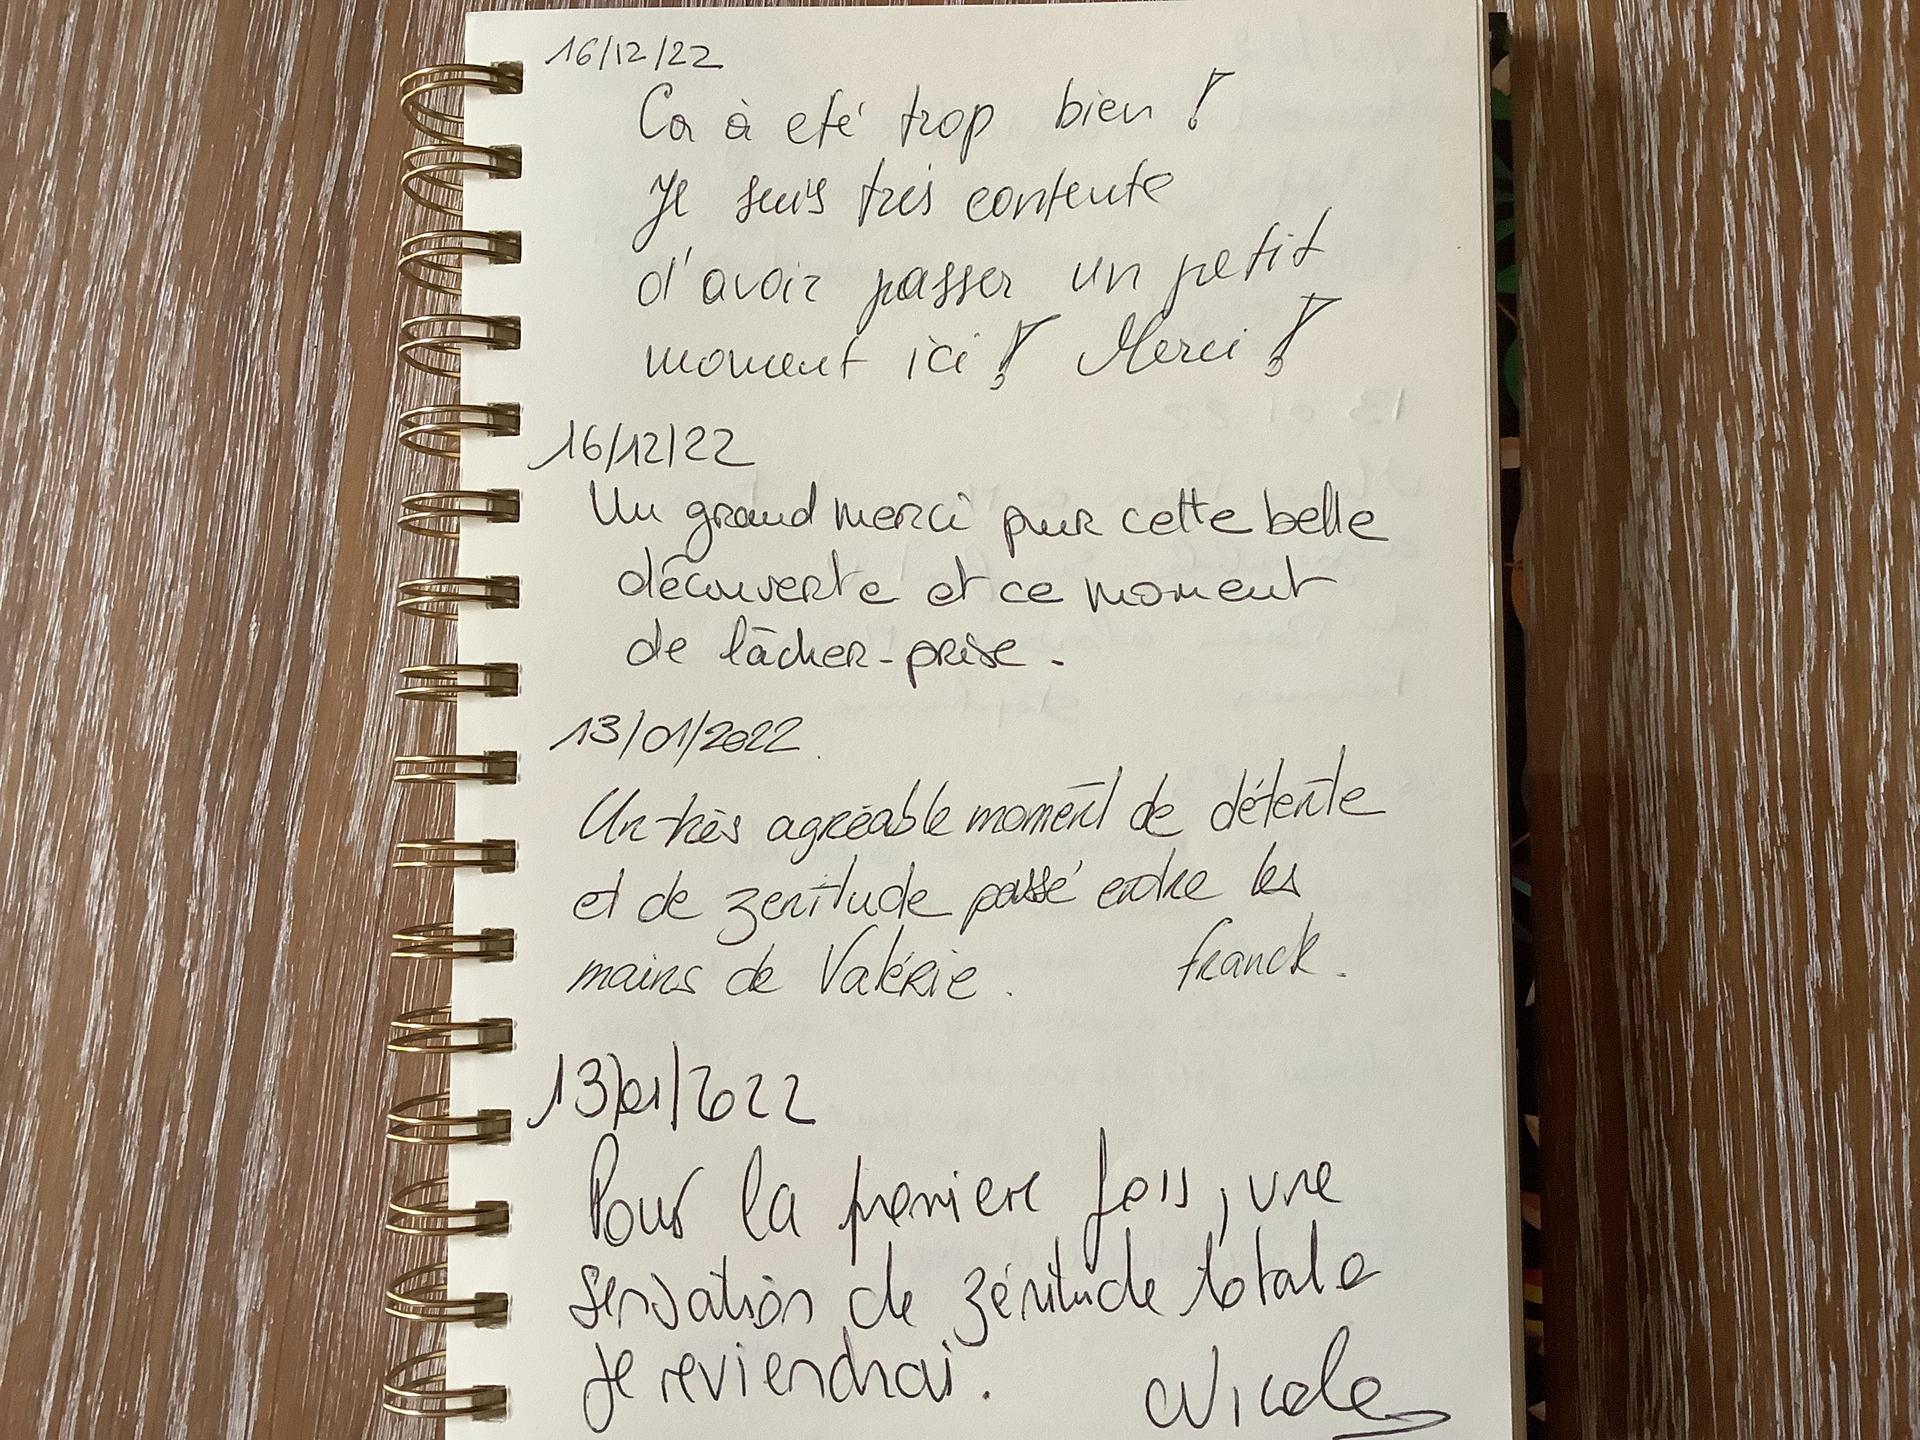 16/12/22
Ca à été trop bien !
Je suis très contente
d'avoir passer un petit
moment ici ! Merci !
16/12/22
Un grand merci pour cette belle
découverte et ce moment
de lâcher-prise.
13/01/2022
Un très agréable moment de détente
et de zenitude passé entre les
mains de Valérie. Franck.
13/01/2022
Pour la premiere fois, une
sensation de zénitude totale
Je reviendrai. Nicole